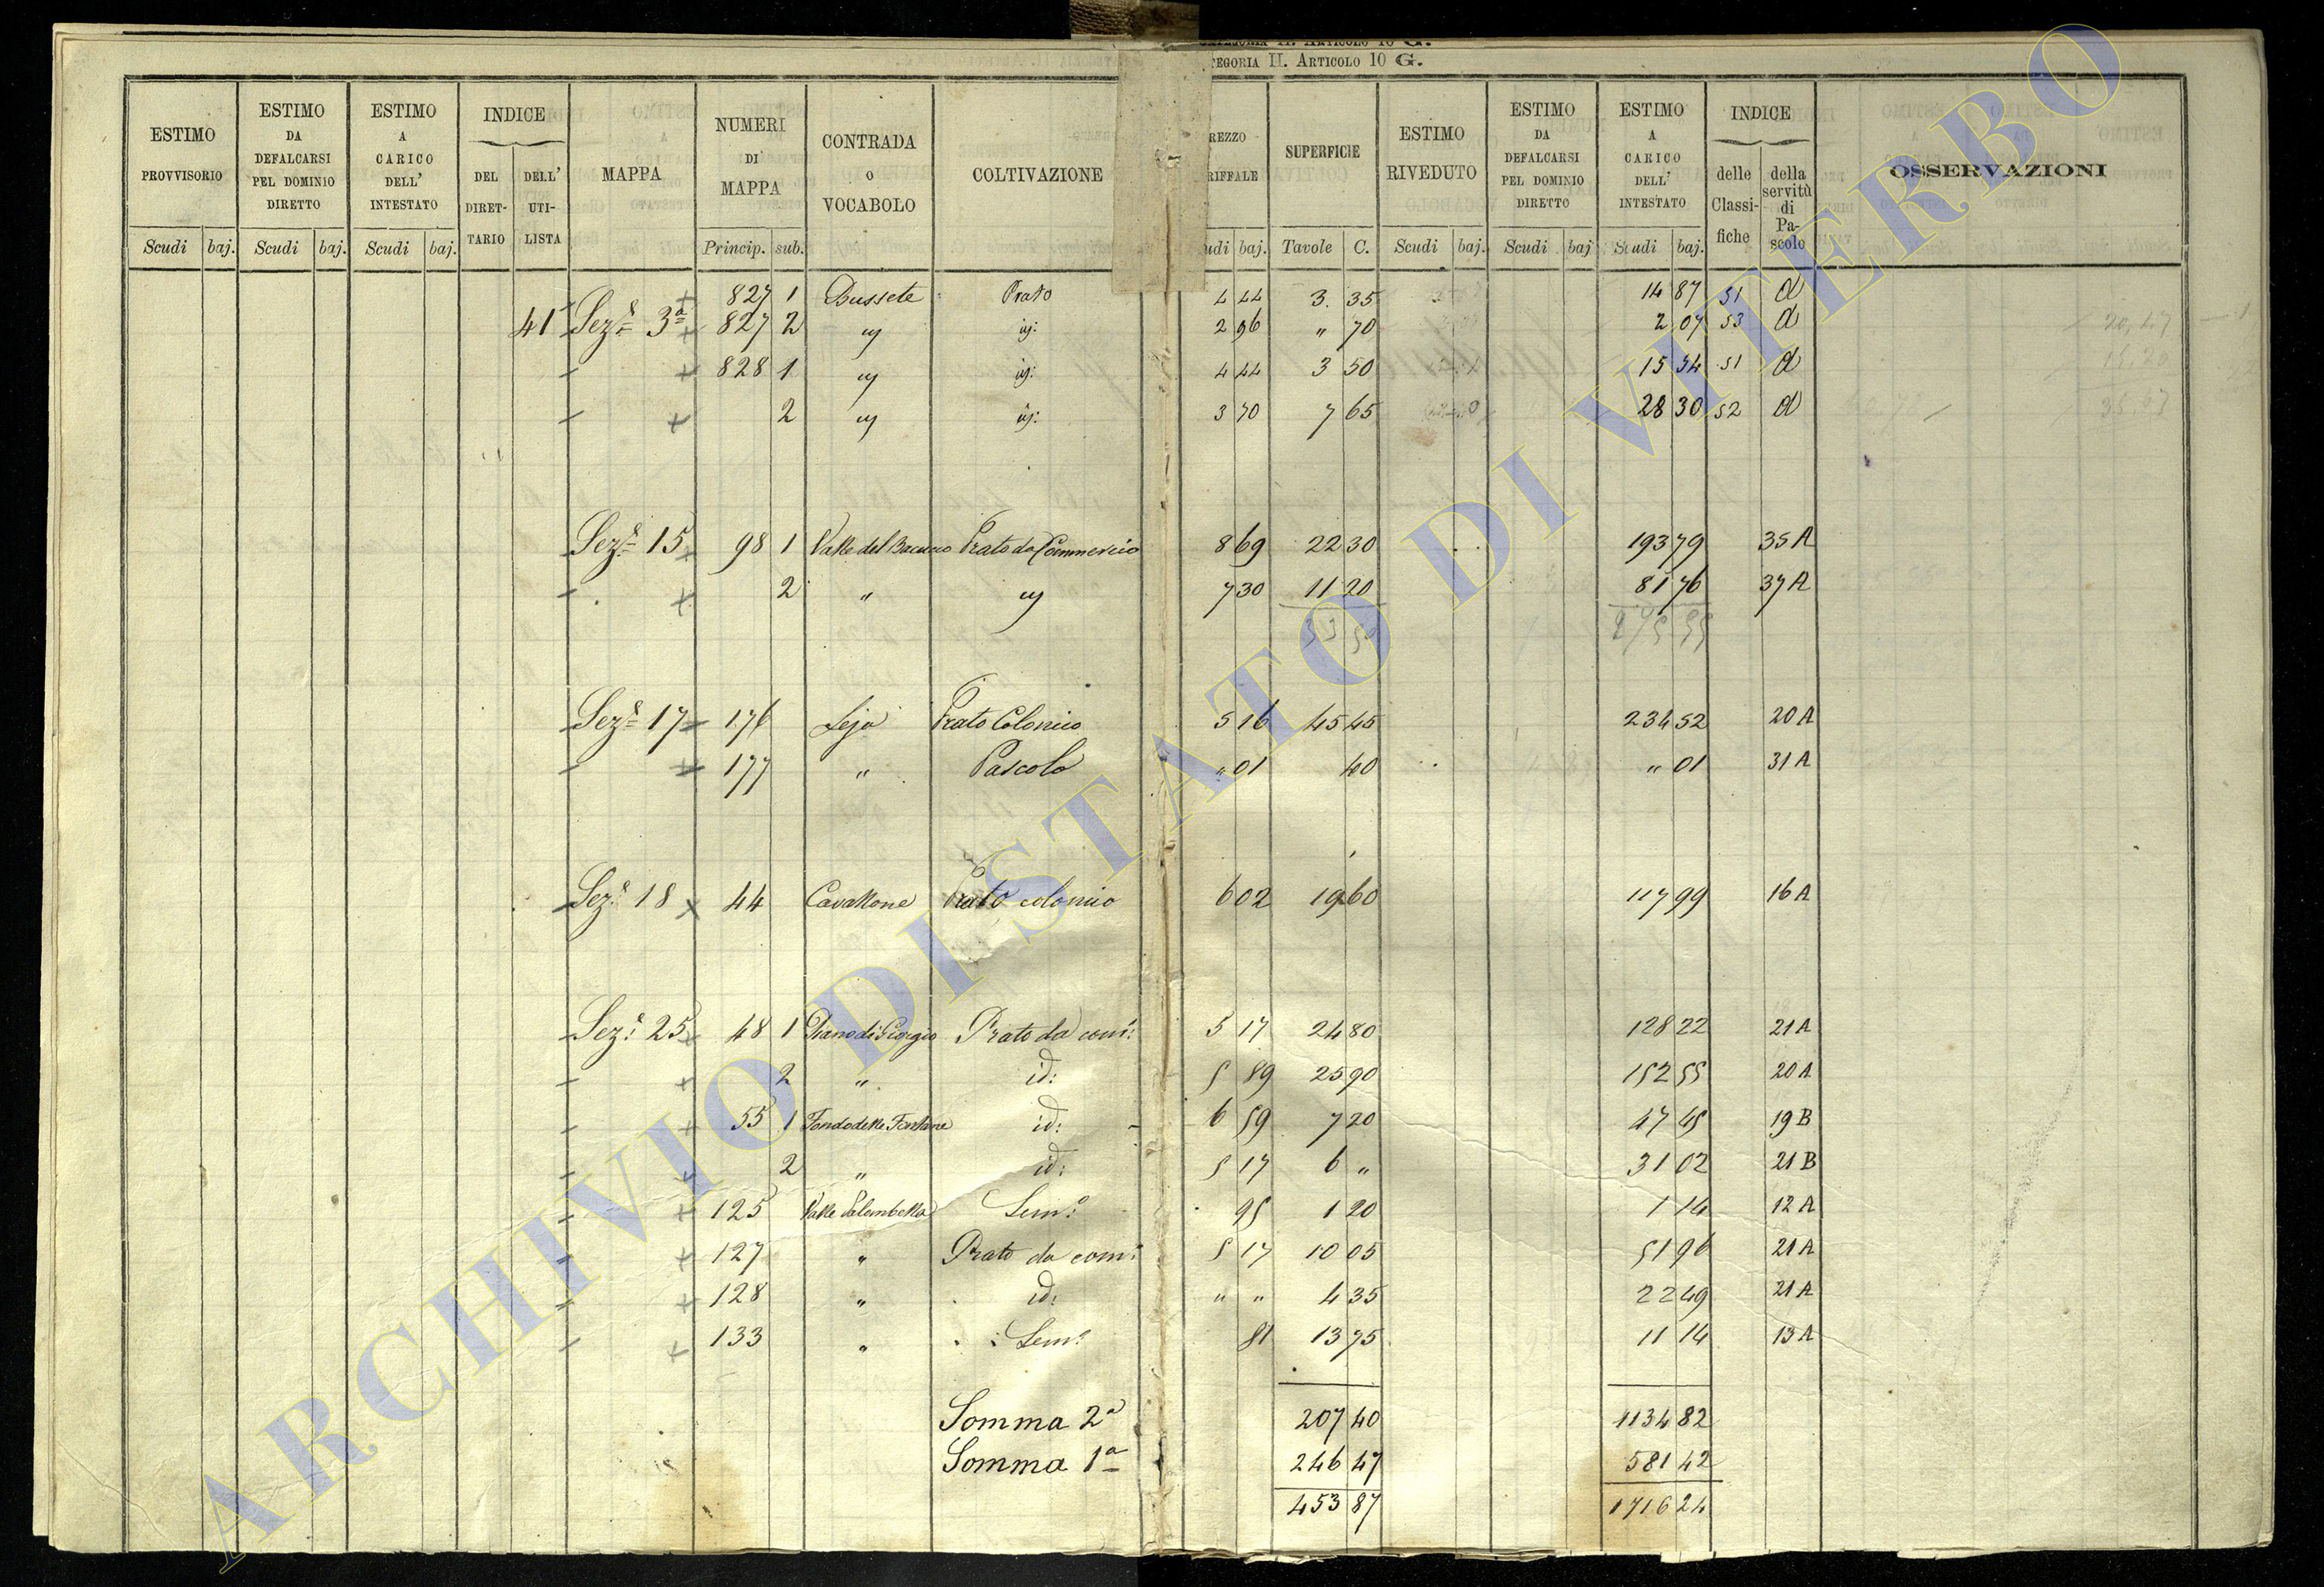 CATEGORIA II. ARTICOLO 10 G.
TEGORIA II. ARTICOLO 10 G.
ESTIMO PROVVISORIO Scudi baj.
ESTIMO DA DEFALCARSI PEL DOMINIO DIRETTO Scudi baj.
ESTIMO A CARICO DELL' INTESTATO Scudi baj.
INDICE DEL DIRET-TARIO DELL' UTI-LISTA
MAPPA
NUMERI DI MAPPA Princip. sub.
CONTRADA O VOCABOLO
COLTIVAZIONE
REZZO RIFFALE udi baj.
SUPERFICIE Tavole C.
ESTIMO RIVEDUTO Scudi baj.
ESTIMO DA DEFALCARSI PEL DOMINIO DIRETTO Scudi baj
ESTIMO A CARICO DELL' INTESTATO Scudi baj.
INDICE delle Classi-fiche della servitù di Pa-scolo
OSSERVAZIONI
827 1 Bussete Prato 4 44 3. 35 14 87 51 d
41 Sez.e 3a 827 2 id: 2 96 " 70 2 07 53 d
828 1 id: 4 44 3 50 15 54 51 d
2 id: 3 70 7 65 28 30 52 d
Sez.e 15 98 1 Valle del Bacucco Prato da Commercio 8 69 22 30 193 79 35 A
2 " 7 30 11 20 81 76 37 A
33 50 275.55
Sez.e 17 176 Leja Prato Colonico 5 16 45 45 234 52 20 A
177 " Pascolo " 01 40 " 01 31 A
Sez.e 18 44 Cavallone Prato colonico 6 02 19 60 117 99 16 A
Sez.e 25 48 1 Piano di Giorgio Prato da com: 5 17 24 80 128 22 21 A
2 " id: 5 89 25 90 152 55 20 A
55 1 Fondo delle Fontane id: 6 59 7 20 47 45 19 B
2 " id: 5 17 6 " 31 02 21 B
125 Valle Palombella Sem.o 95 1 20 1 14 12 A
127 " Prato da com: 5 17 10 05 51 96 21 A
128 " id: " " 4 35 22 49 21 A
133 " Sem.o 81 13 75 11 14 13 A
Somma 2a 207 40 1134 82
Somma 1a 246 47 581 42
453 87 1716 24
ARCHIVIO DI STATO DI VITERBO